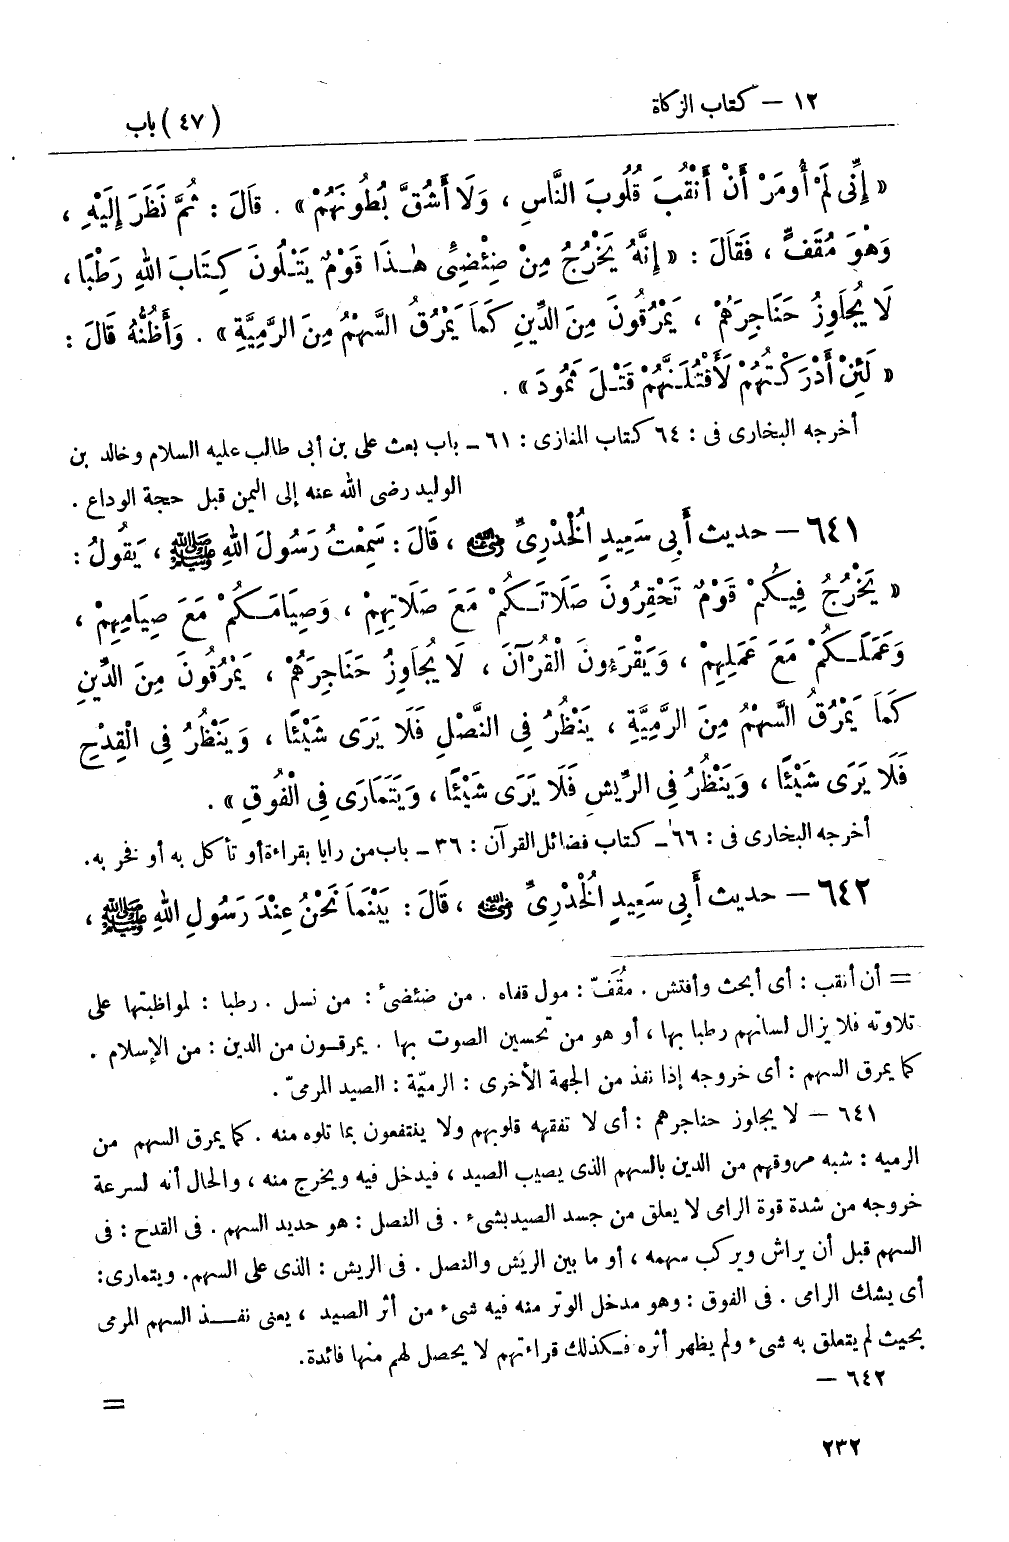 ١٢ — كتاب الزكاة
(٤٧) باب
« إِنِّى لَمْ أُومَرْ أَنْ أَنْقُبَ قُلُوبَ النَّاسِ ، وَلَا أَشُقَّ بُطُونَهُمْ » . قَالَ : ثُمَّ نَظَرَ إِلَيْهِ ،
وَهْوَ مُقَفٍّ ، فَقَالَ : « إِنَّهُ يَخْرُجُ مِنْ ضِئْضِئِ هٰذَا قَوْمٌ يَتْلُونَ كِتَابَ اللهِ رَطْبًا ،
لَا يُجَاوِزُ حَنَاجِرَهُمْ ، يَمْرُقُونَ مِنَ الدِّينِ كَمَا يَمْرُقُ السَّهْمُ مِنَ الرَّمِيَّةِ » . وَأَظُنُّهُ قَالَ :
« لَئِنْ أَدْرَكْتُهُمْ لَأَقْتُلَنَّهُمْ قَتْلَ ثَمُودَ » .
أخرجه البخارى فى : ٦٤ كتاب المغازى : ٦١ ـ باب بعث على بن أبى طالب عليه السلام وخالد بن
الوليد رضى الله عنه إلى اليمن قبل حجة الوداع .
٦٤١ — حديث أَبِى سَعِيدٍ الْخُدْرِىِّ رضي الله عنه ، قَالَ : سَمِعْتُ رَسُولَ اللهِ ﷺ ، يَقُولُ :
« يَخْرُجُ فِيكُمْ قَوْمٌ تَحْقِرُونَ صَلَاتَكُمْ مَعَ صَلَاتِهِمْ ، وَصِيَامَكُمْ مَعَ صِيَامِهِمْ ،
وَعَمَلَكُمْ مَعَ عَمَلِهِمْ ، وَيَقْرَءُونَ الْقُرْآنَ ، لَا يُجَاوِزُ حَنَاجِرَهُمْ ، يَمْرُقُونَ مِنَ الدِّينِ
كَمَا يَمْرُقُ السَّهْمُ مِنَ الرَّمِيَّةِ ، يَنْظُرُ فِى النَّصْلِ فَلَا يَرَى شَيْئًا ، وَيَنْظُرُ فِى الْقِدْحِ
فَلَا يَرَى شَيْئًا ، وَيَنْظُرُ فِى الرِّيشِ فَلَا يَرَى شَيْئًا ، وَيَتَمَارَى فِى الْفُوقِ » .
أخرجه البخارى فى : ٦٦ ـ كتاب فضائل القرآن : ٣٦ ـ باب من رايا بقراءة أو تأكل به أو فخر به.
٦٤٢ — حديث أَبِى سَعِيدٍ الْخُدْرِىِّ رضي الله عنه ، قَالَ : بَيْنَمَا نَحْنُ عِنْدَ رَسُولِ اللهِ ﷺ ،
= أن أنقب : أى أبحث وأفتش . مُقَفّ : مول قفاه . من ضئضئ : من نسل . رطبا : لمواظبتها على
تلاوته فلا يزال لسانهم رطبا بها ، أو هو من تحسين الصوت بها . يمرقون من الدين : من الإسلام .
كما يمرق السهم : أى خروجه إذا نفذ من الجهة الأخرى : الرميّة : الصيد المرمىّ .
٦٤١ — لا يجاوز حناجرهم : أى لا تفقهه قلوبهم ولا ينتفعون بما تلوه منه . كما يمرق السهم من
الرميه : شبه مروقهم من الدين بالسهم الذى يصيب الصيد ، فيدخل فيه ويخرج منه ، والحال أنه لسرعة
خروجه من شدة قوة الرامى لا يعلق من جسد الصيد بشىء . فى النصل : هو حديد السهم . فى القدح : فى
السهم قبل أن يراش ويركب سهمه ، أو ما بين الريش والنصل . فى الريش : الذى على السهم. ويتمارى :
أى يشك الرامى . فى الفوق : وهو مدخل الوتر منه فيه شىء من أثر الصيد ، يعنى نفــذ السهم المرمى
بحيث لم يتعلق به شىء ولم يظهر أثره فكذلك قراءتهم لا يحصل لهم منها فائدة.
٦٤٢ —
=
٢٣٢